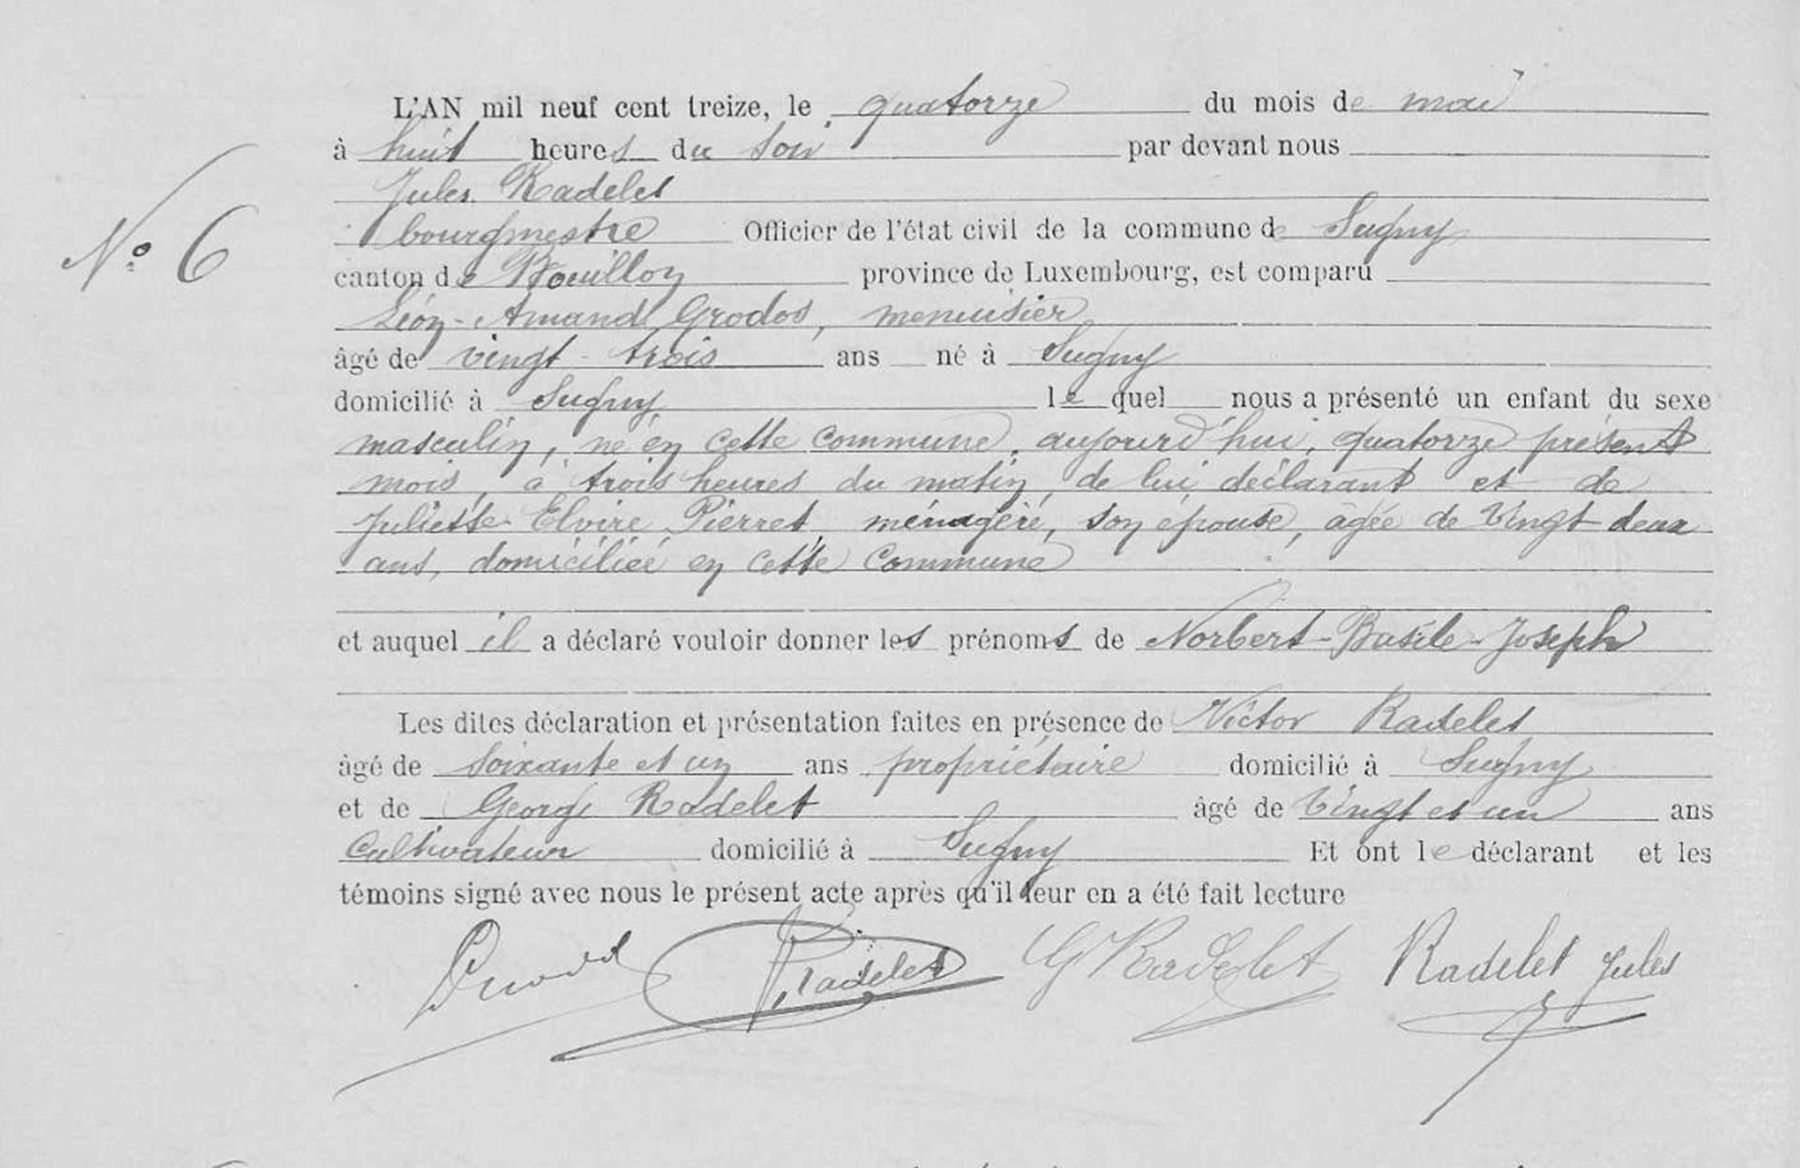 L'AN mil neuf cent treize, le quatorze du mois de mai
à huit heures du soir par devant nous
Jules Radelet
N° 6
bourgmestre Officier de l'état civil de la commune de Sugny
canton de Bouillon province de Luxembourg, est comparu
Léon-Amand Grodos, menuisier
âgé de vingt-trois ans né à Sugny
domicilié à Sugny lequel nous a présenté un enfant du sexe
masculin, né en cette commune, aujourd'hui, quatorze présent
mois, à trois heures du matin, de lui déclarant et de
Juliette Elvire Pierret, ménagère, son épouse, âgée de vingt-deux
ans, domiciliée en cette commune
et auquel il a déclaré vouloir donner les prénoms de Norbert-Basile-Joseph
Les dites déclaration et présentation faites en présence de Victor Radelet
âgé de soixante et un ans propriétaire domicilié à Sugny
et de Georges Radelet âgé de vingt et un ans
cultivateur domicilié à Sugny Et ont le déclarant et les
témoins signé avec nous le présent acte après qu'il leur en a été fait lecture
Radelet G Radelet Radelet Jules